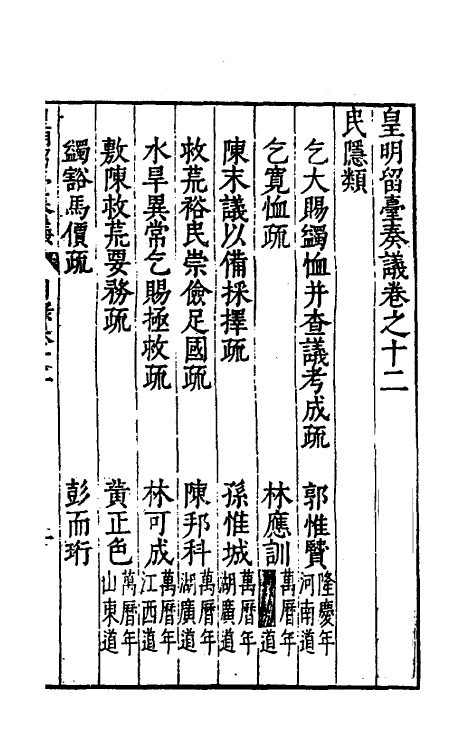 皇明留臺奏議卷之十二
民隱類
乞大賜蠲恤并查議考成疏 郭惟賢 隆慶年河南道
乞寬恤疏 林應訓 萬曆年 道
陳末議以備採擇疏 孫惟城 萬曆年湖廣道
救荒裕民崇儉足國疏 陳邦科 萬曆年湖廣道
水旱異常乞賜極救疏 林可成 萬曆年江西道
敷陳救荒要務疏 黃正色 萬曆年山東道
蠲豁馬價疏 彭而珩